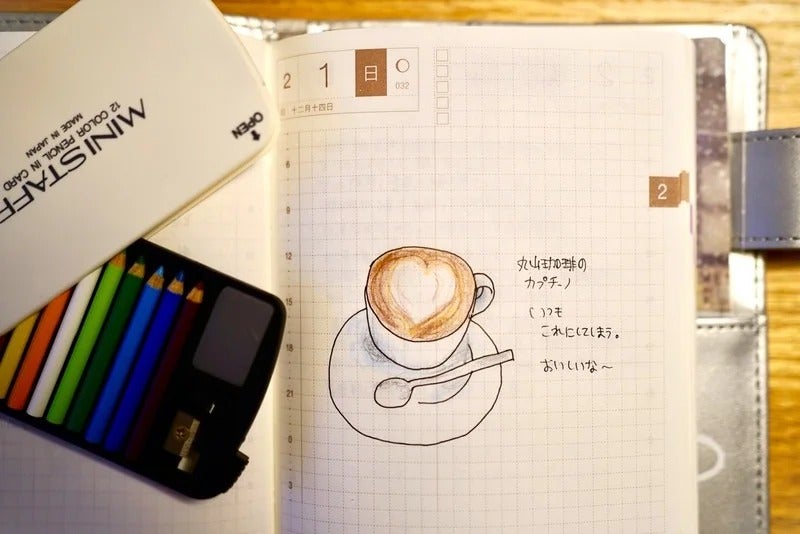 MINI STAFF
12 COLOR PENCIL IN CARD
MADE IN JAPAN
OPEN
2 1 日
032
十二月十四日
2
6
9
12
15
18
21
0
3
丸山珈琲の
カプチーノ
いつも
これにしてしまう。
おいしいな〜